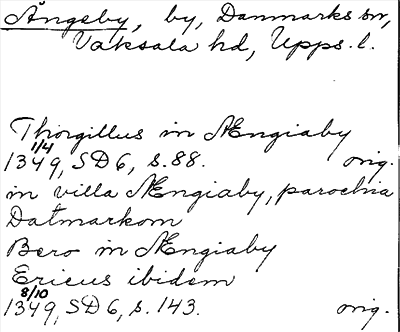 Ängeby, by, Danmarks sn,
Vaksala hd, Upps. l.
Thorgillus in Ængiaby
1/4
1349, SD 6, s. 88. orig.
in villa Ængiaby, parochia
Datmarkom
Bero in Ængiaby
Ericus ibidem
8/10
1349, SD 6, s. 143. orig.